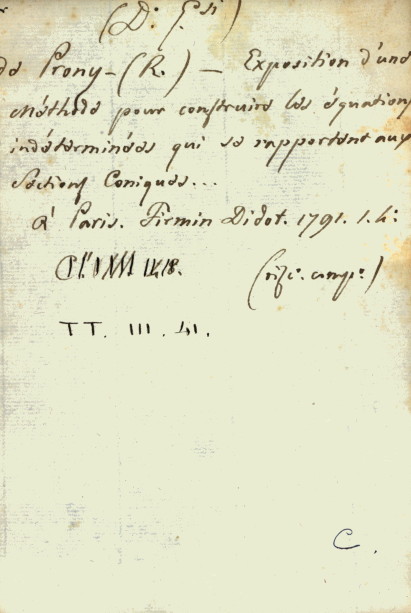 (D. Gsi)
de Prony - (R.) - Exposition d'une
Méthode pour construire les équations
indéterminées qui se rapportent aux
Sections Coniques...
à Paris. Firmin Didot. 1791. 1. 4:
TT. III. 41.
C.